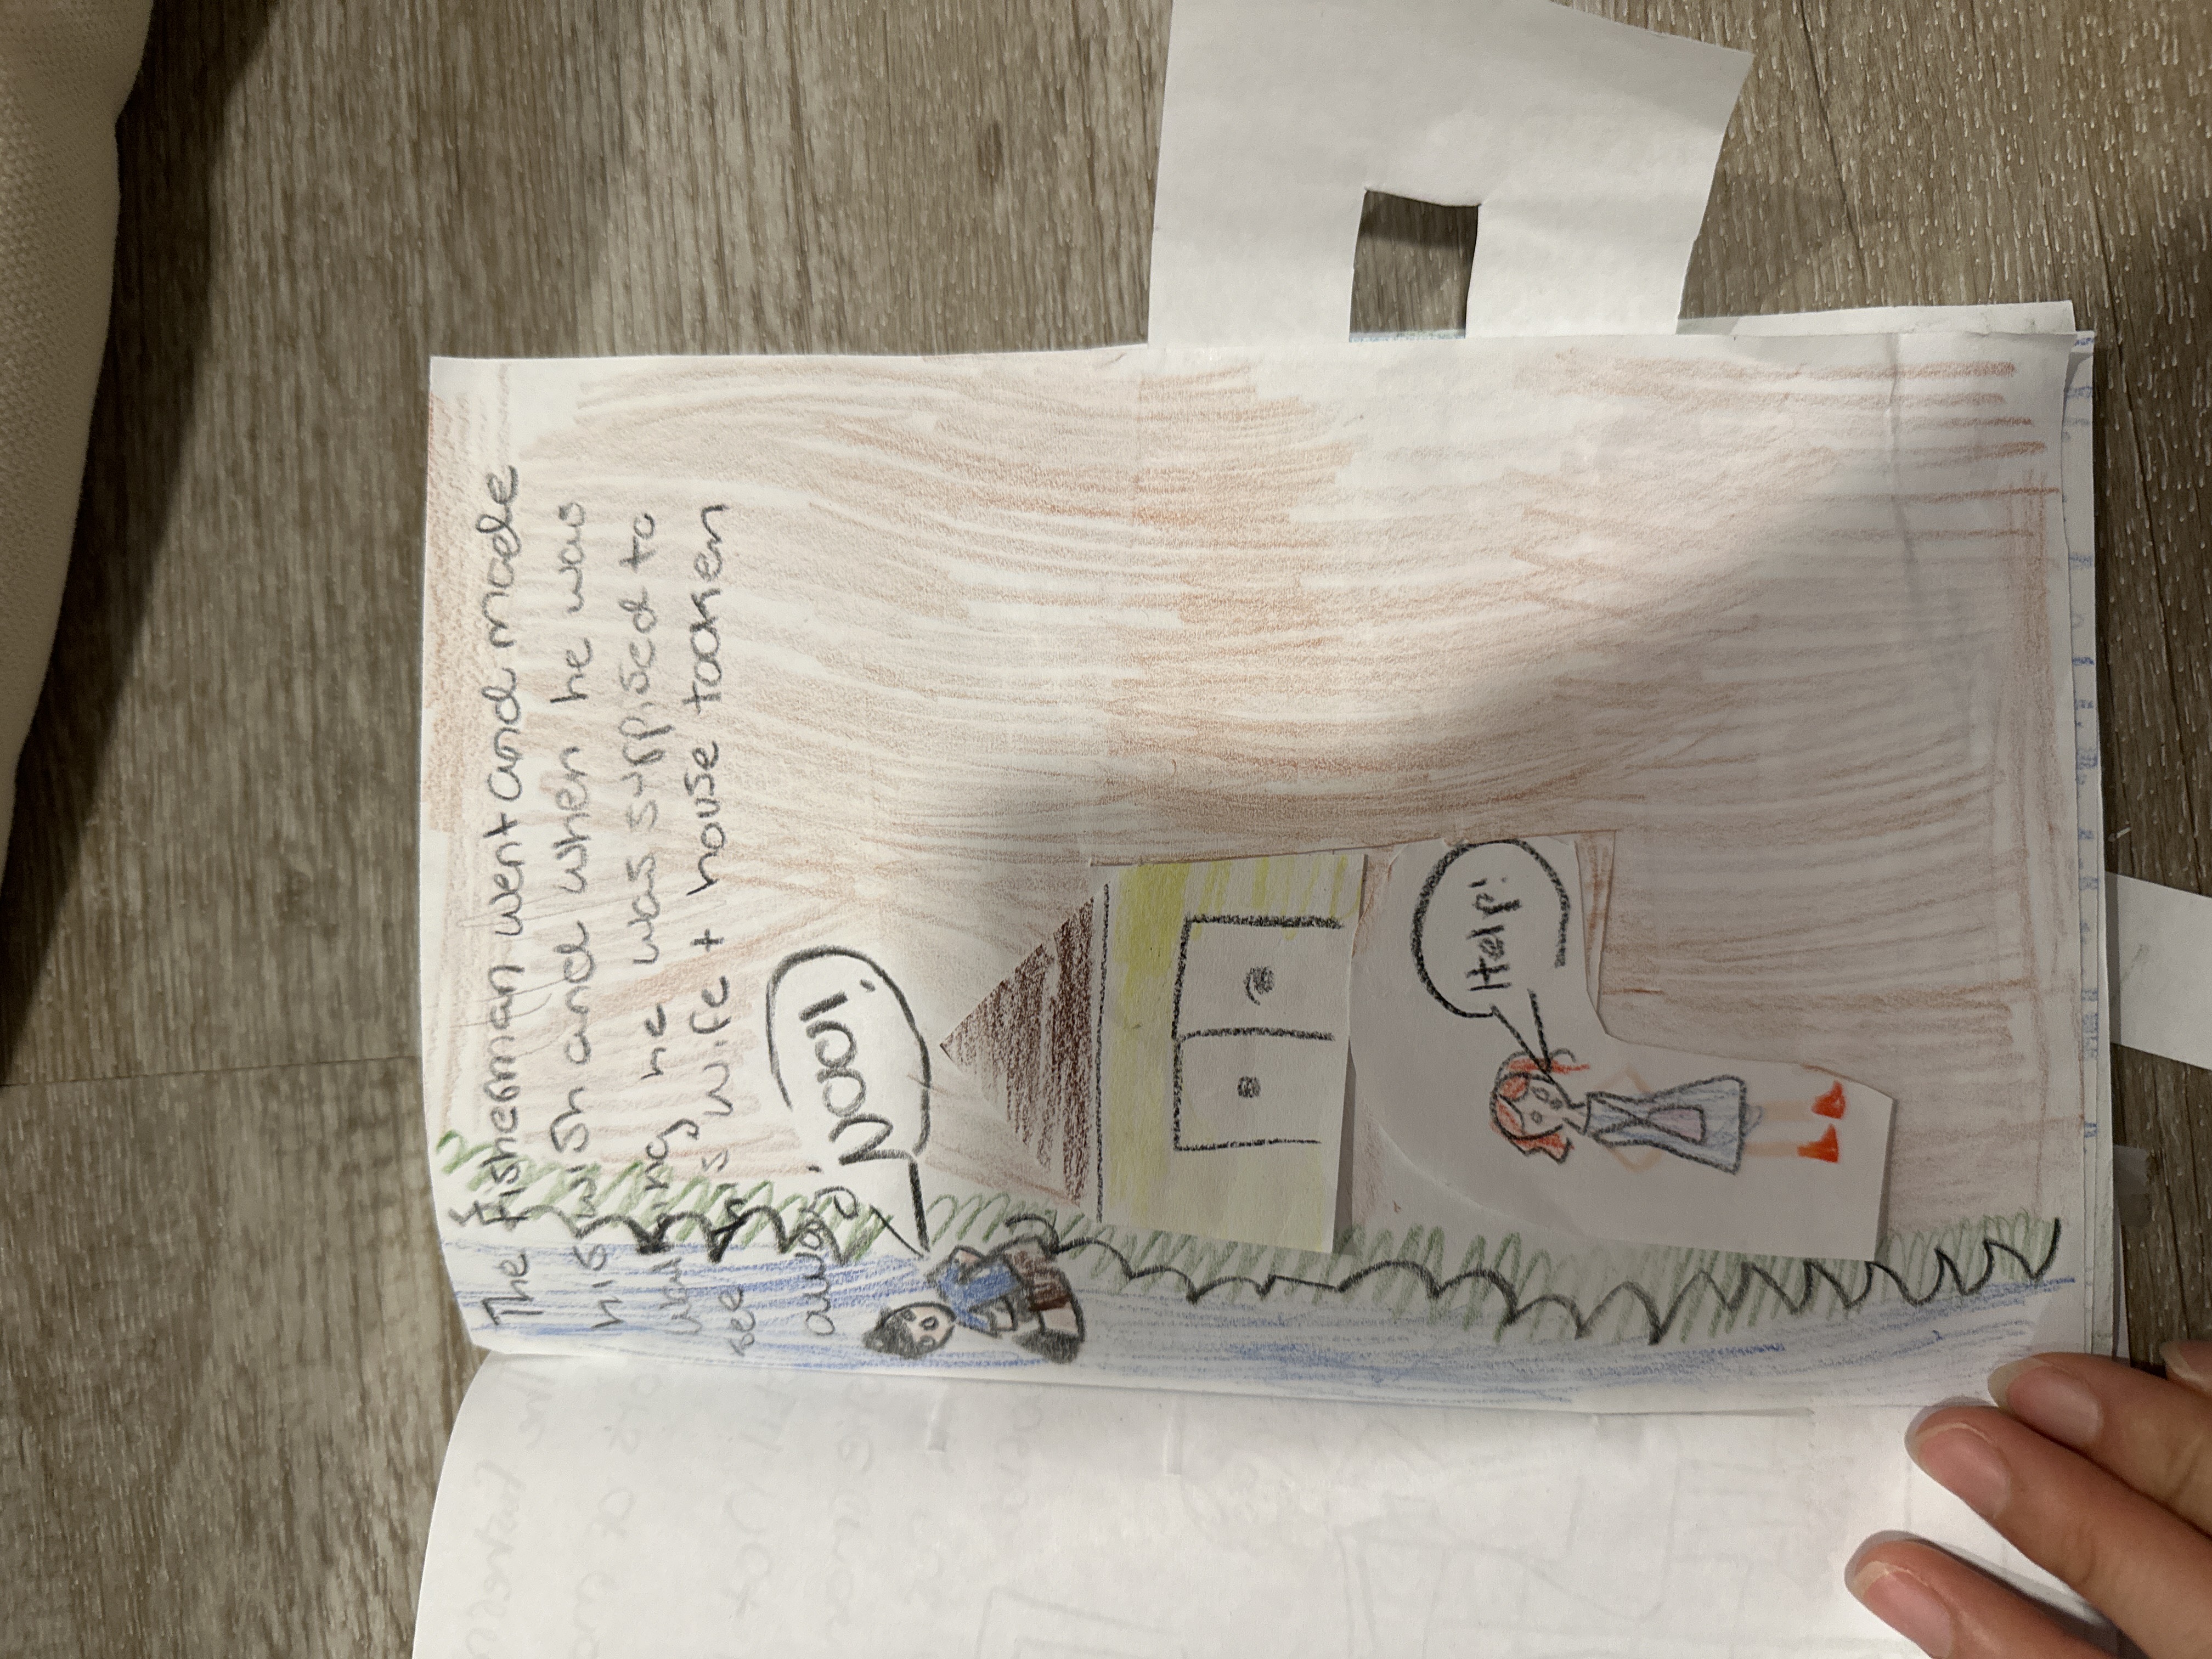 The Fisherman went and made
his wish and when he was
walking he was suppised to
see his wife + house tooken
away.
NOO!
Help!